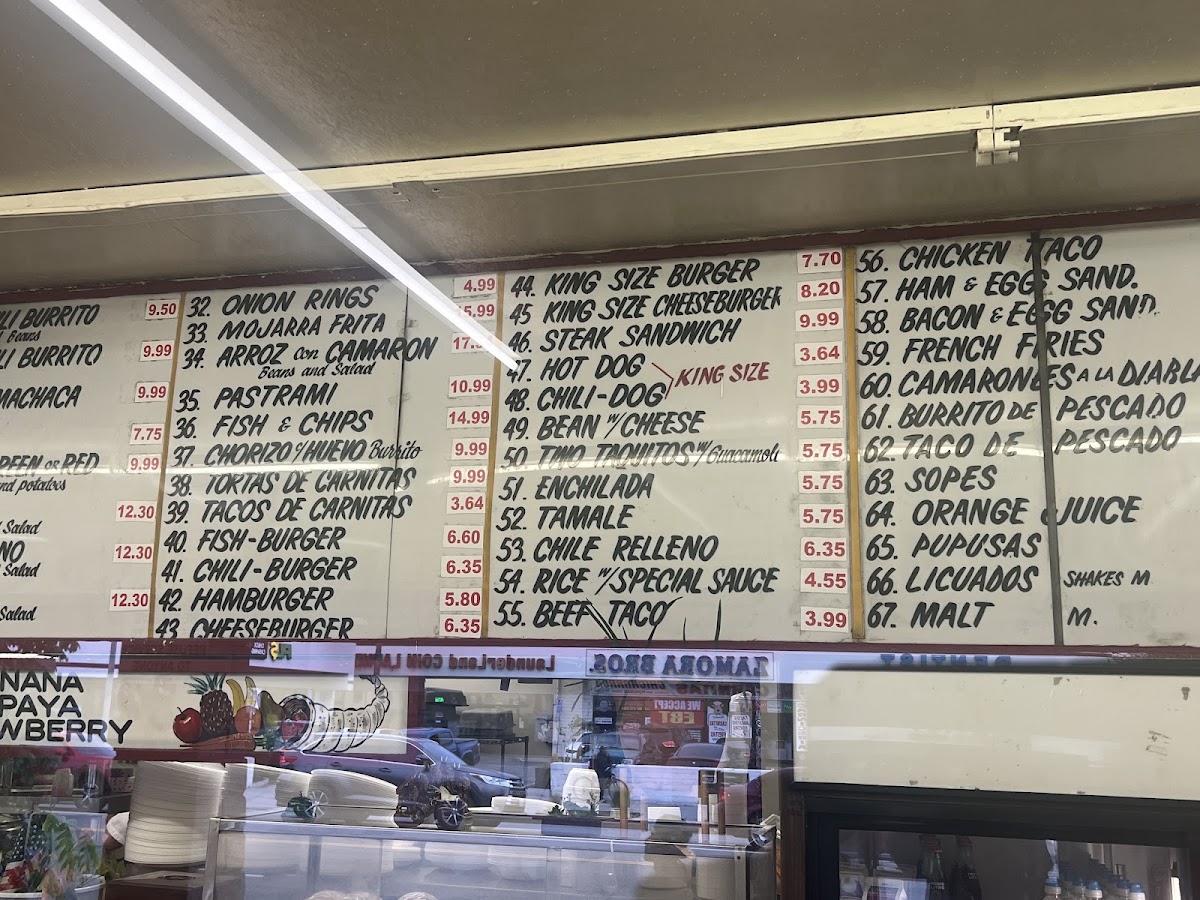 LI BURRITO 9.50
Beans
LI BURRITO 9.99
MACHACA 9.99
7.75
REEN or RED 9.99
nd potatoes
12.30
Salad
NO 12.30
Salad
12.30
Salad
32. ONION RINGS 4.99
33. MOJARRA FRITA 5.99
34. ARROZ con CAMARON 17.
Beans and Salad
35. PASTRAMI 10.99
36. FISH & CHIPS 14.99
37. CHORIZO c/HUEVO Burrito 9.99
38. TORTAS DE CARNITAS 9.99
39. TACOS DE CARNITAS 3.64
40. FISH-BURGER 6.60
41. CHILI-BURGER 6.35
42. HAMBURGER 5.80
43. CHEESEBURGER 6.35
44. KING SIZE BURGER 7.70
45. KING SIZE CHEESEBURGER 8.20
46. STEAK SANDWICH 9.99
47. HOT DOG 3.64
KING SIZE
48. CHILI-DOG 3.99
49. BEAN w/CHEESE 5.75
50. TWO TAQUITOS w/Guacamole 5.75
51. ENCHILADA 5.75
52. TAMALE 5.75
53. CHILE RELLENO 6.35
54. RICE w/SPECIAL SAUCE 4.55
55. BEEF TACO 3.99
56. CHICKEN TACO
57. HAM & EGGS SAND.
58. BACON & EGG SAND.
59. FRENCH FRIES
60. CAMARONES A LA DIABLA
61. BURRITO DE PESCADO
62. TACO DE PESCADO
63. SOPES
64. ORANGE JUICE
65. PUPUSAS
66. LICUADOS SHAKES M
67. MALT M.
LaunderLand COIN LAUN
ZAMORA BROS.
DENTIST
WE ACCEPT
EBT
NANA
PAYA
WBERRY